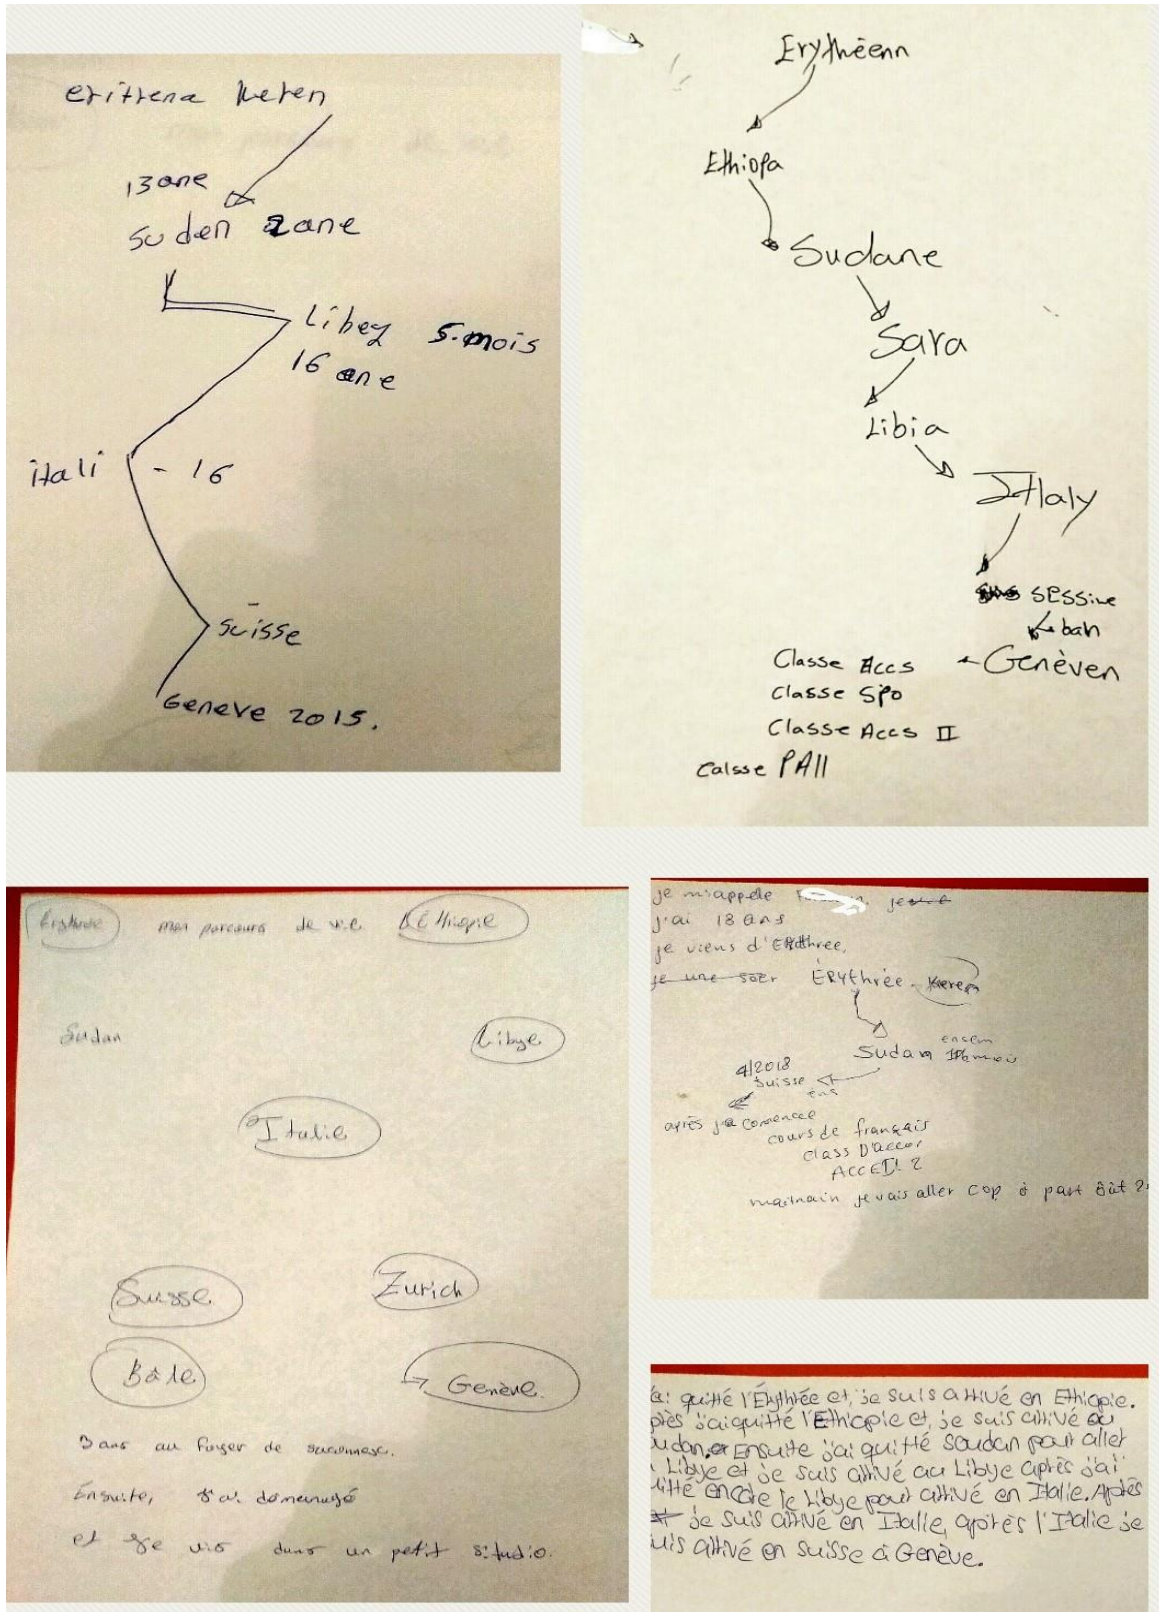 eritrena keren
13 ane
suden 2ane
Libey 5.mois
16 ane
itali - 16
suisse
Geneve 2015.
Erythéenn
Ethiopa
Sudane
Sara
Libia
Itlaly
sessive
bah
Genèven
Classe Accs
Classe Spo
Classe Accs II
Calsse PAII
mon parcours de vie
Sudan
Libye
Italie
Suisse
Zurich
Bâle
Genève.
3 ans au foyer de
Ensuite, j'ai demenagé
et je vis dans un petit studio.
je m'appelle
j'ai 18 ans
je viens d'ERythrée.
je une soer ÉRYthrée - Kerep
ensem
Sudan
4/2018
Suisse
après commence
cours de français
class D'accor
2
je vais aller cop à part
quitté l'Érythrée et, je suis arrivé en Ethiopie.
j'ai quitté l'Ethiopie et, je suis arrivé au
Ensuite j'ai quitté soudan pour aller
Libye et je suis arrivé au Libye après j'ai
encore le Libye pour arrivé en Italie. Après
je suis arrivé en Italie, après l'Italie je
arrivé en suisse à Genève.